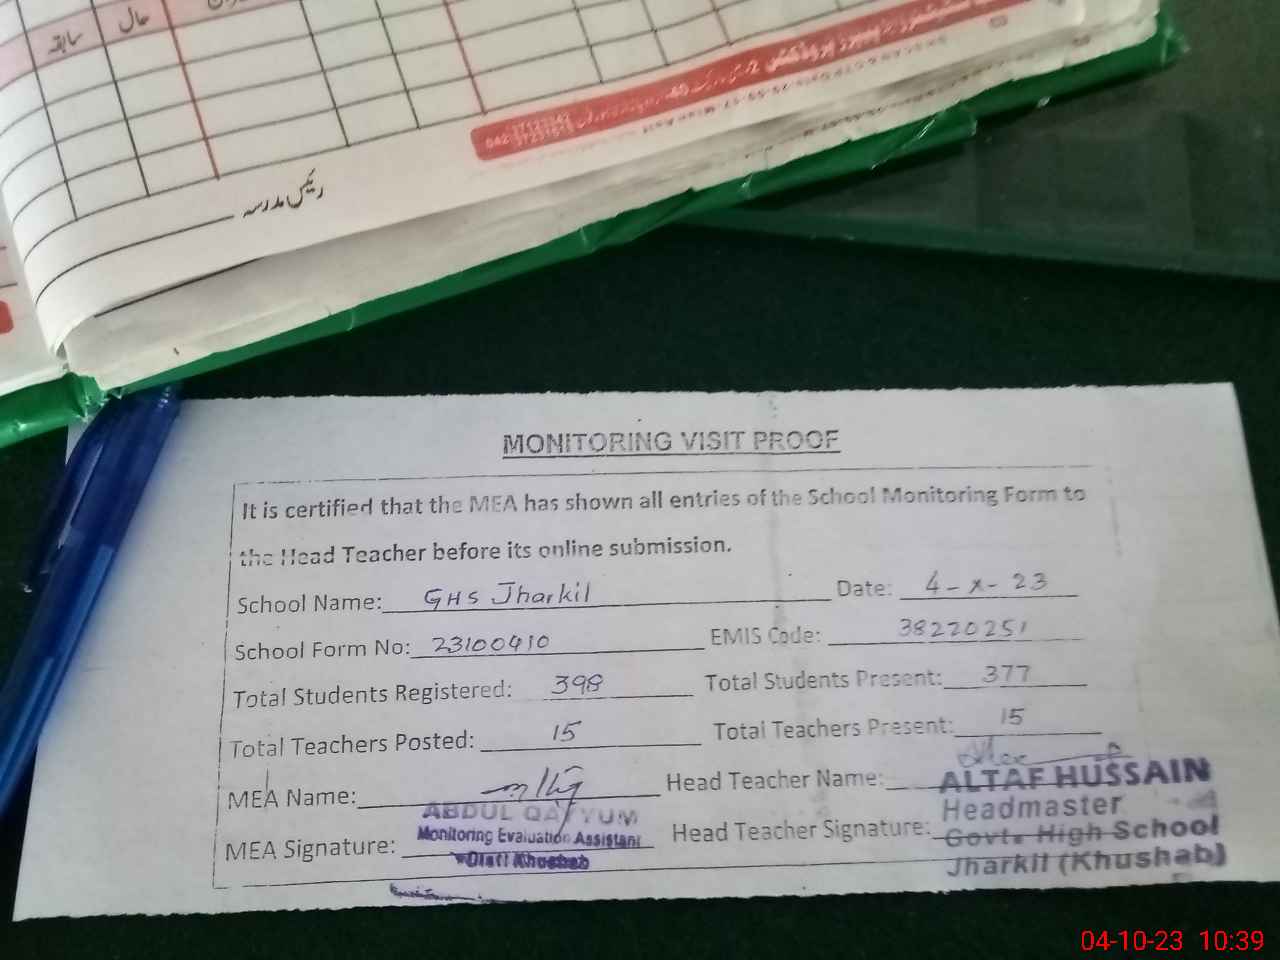 سابقہ
حال
رئیس مدرسہ
MONITORING VISIT PROOF
It is certified that the MEA has shown all entries of the School Monitoring Form to
the Head Teacher before its online submission.
School Name: GHS Jharkil Date: 4-X-23
School Form No: 23100410 EMIS Code: 38220251
Total Students Registered: 398 Total Students Present: 377
Total Teachers Posted: 15 Total Teachers Present: 15
MEA Name: Head Teacher Name: ALTAF HUSSAIN
ABDUL QAYYUM Headmaster
Monitoring Evaluation Assistant
MEA Signature: Head Teacher Signature: Govt. High School
Distt Khushab Jharkil (Khushab)
04-10-23 10:39